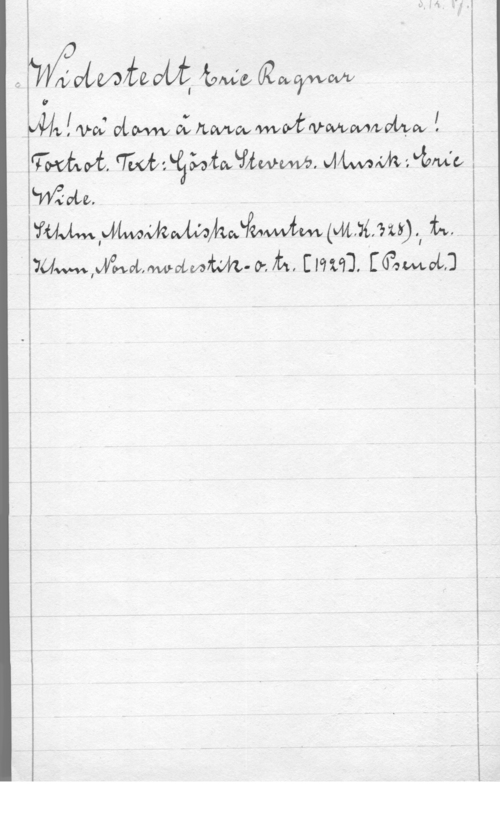 Widestedt, Eric Ragnar
Åh! va' dom ä rara mot varandra!
Foxtrot. Text: Gösta Stevens. Musik: Eric
Wide.
Sthlm, Musikaliska knuten (M.K. 328); tr.
Khvn, Nord. nodestik- o. tr. [1929]. [Pseud.]